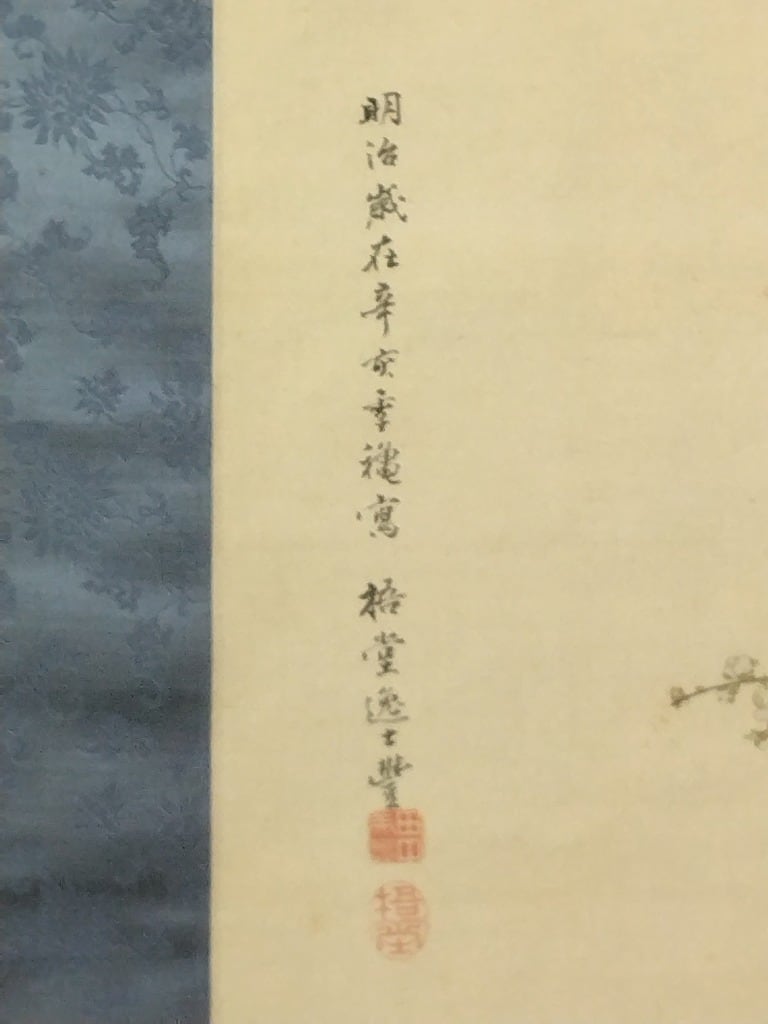 明治歳在辛亥季穐寫 梧堂逸士豊
梧堂